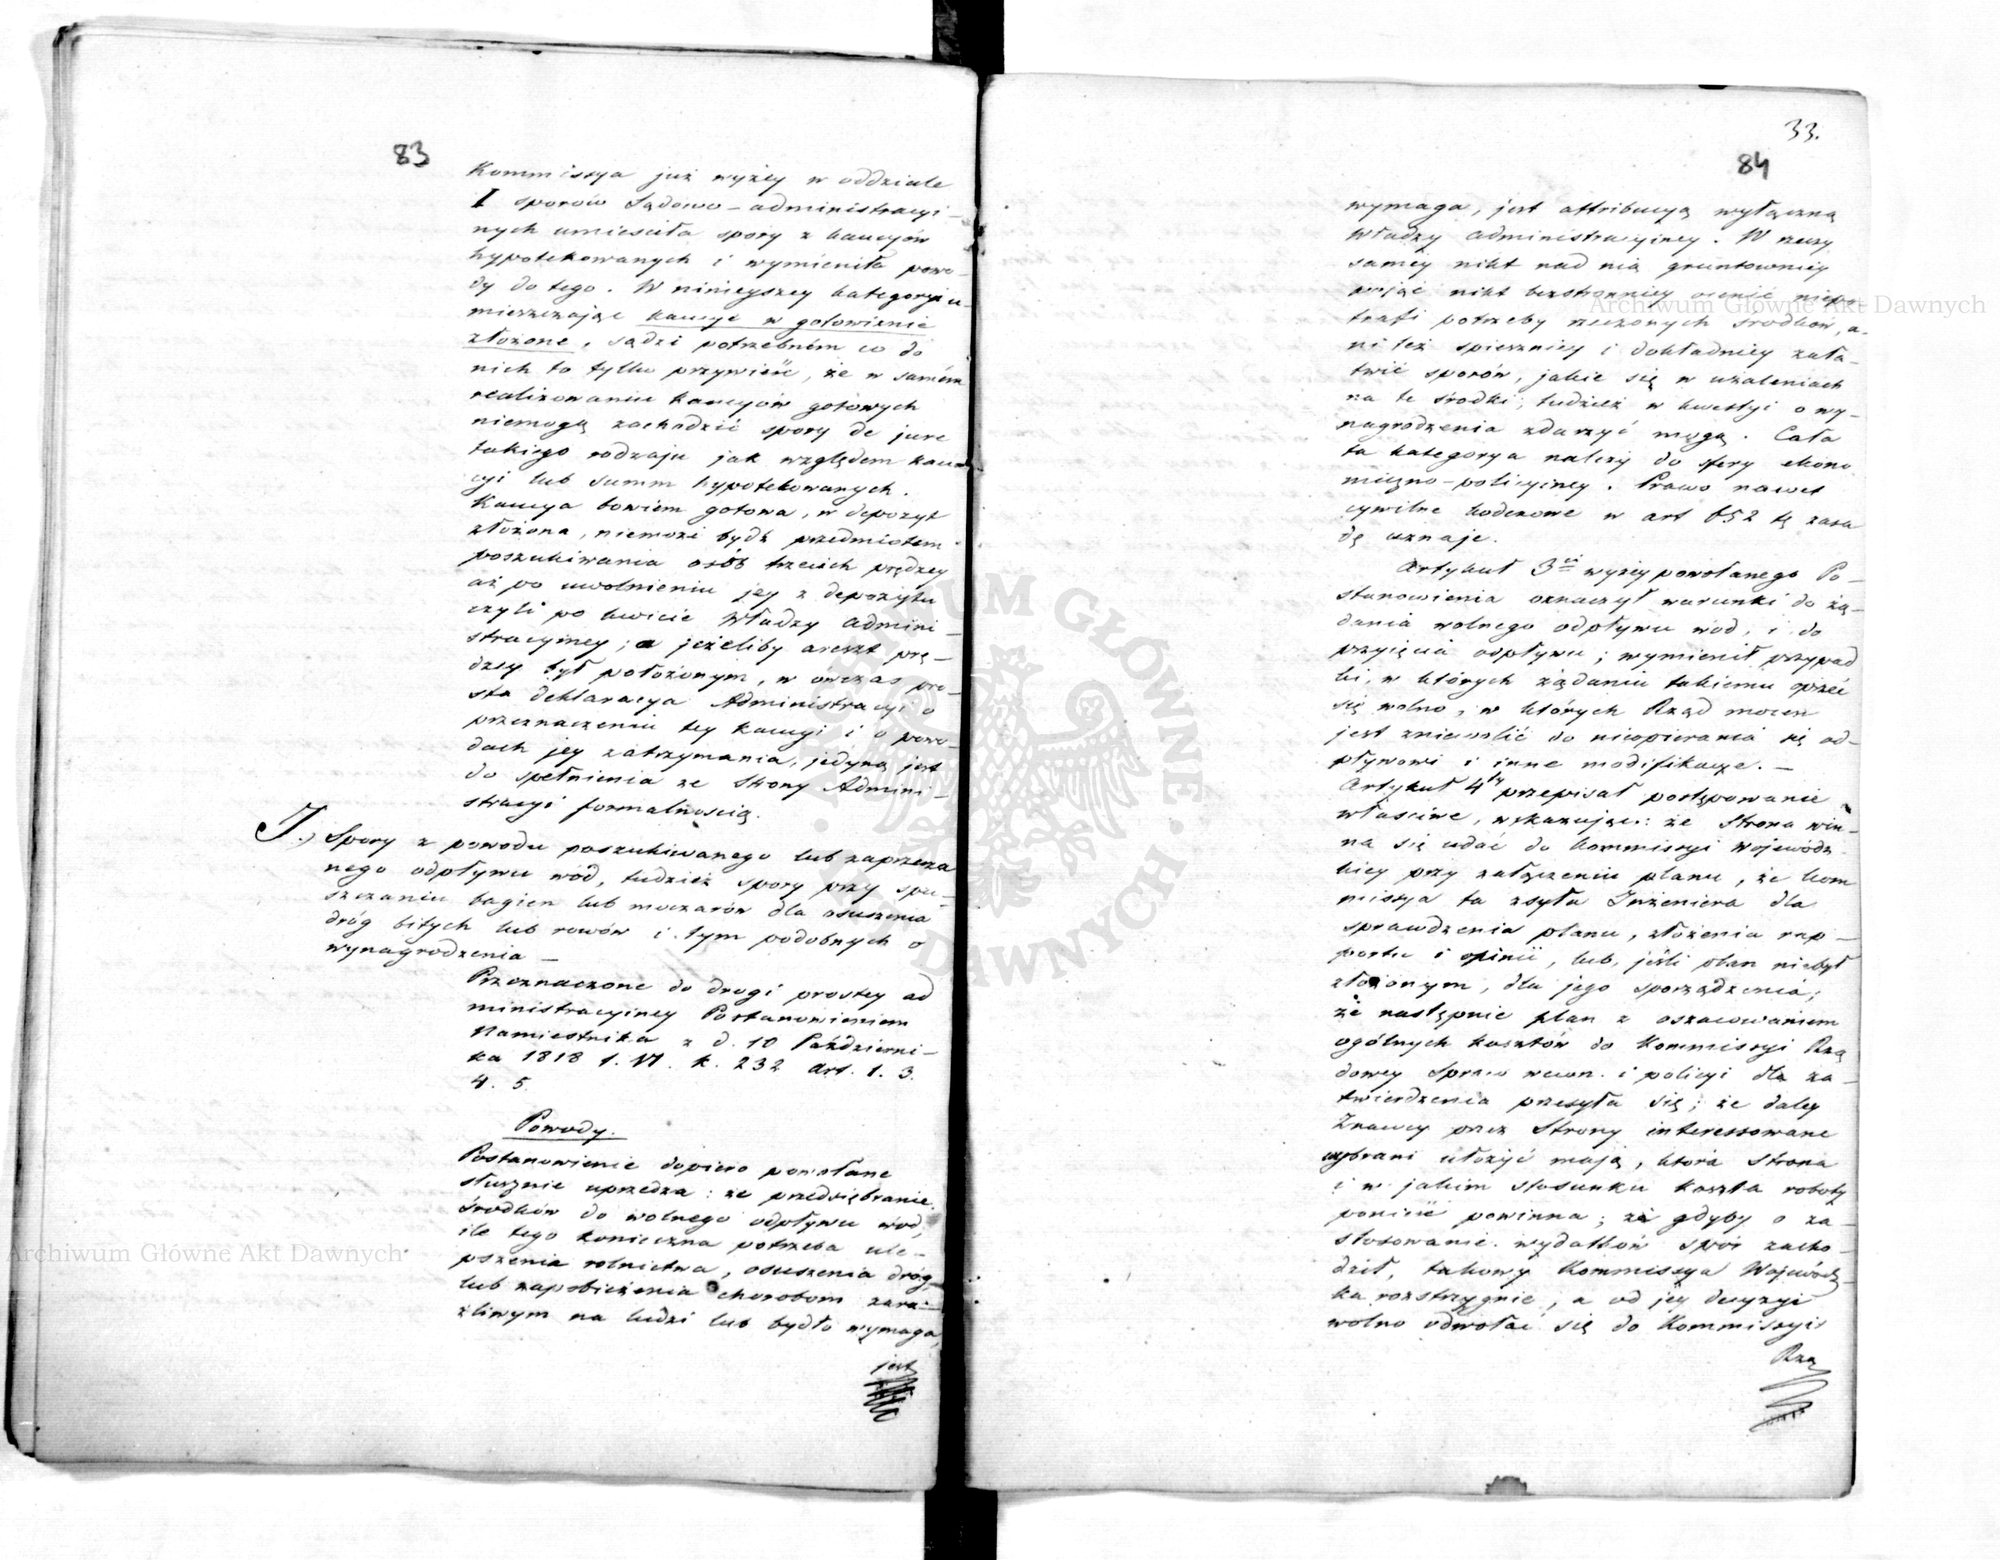 83
Kommissya już wyżey w oddziale
I sporów Sądowo-administracyi-
nych umieściła spory z kaucyów
hypotekowanych i wymieniła powo-
dy do tego. W ninieyszey kategoryi u-
mieszczając kaucye w gotowiznie
złożone, sądzi potrzebném co do
nich to tylko przywieść, że w samém
realizowaniu kaucyów gotowych
niemogą zachodzić spory de jure
takiego rodzaju jak względem kau-
cyi lub summ hypotekowanych.
Kaucya bowiem gotowa, w depozyt
złożona, niemoże bydź przedmiotem
poszukiwania osób trzecich prędzey
aż po uwolnieniu jey z depozytu
czyli po kwicie Władzy admini-
stracyiney; a jeżeliby areszt prę-
dzey był położonym, w ówczas pro-
sta deklaracya Administracyi o
przeznaczeniu tey kaucyi i o powo-
dach jey zatrzymania, jedyną jest
do spełnienia ze strony Admini-
stracyi formalnością.
J., Spory z powodu poszukiwanego lub zaprzeczo
nego odpływu wód, tudzież spory przy spu-
szczaniu bagien lub moczarów dla osuszenia
dróg bitych lub rowów i tym podobnych o
wynagrodzenia —
Przeznaczone do drogi prostey ad
ministracyiney Postanowieniem
Namiestnika z d. 10 Październi-
ka 1818 t. VI. k. 232 art. 1. 3.
4. 5.
Powody.
Postanowienie dopiero powołane
słusznie uprzedza: że przedsiębranie
środków do wolnego odpływu wód,
ile tego konieczna potrzeba ule-
pszenia rolnictwa, osuszenia dróg,
lub zapobieżenia chorobom zara-
źliwym na ludzi lub bydło wymaga,
jest
33.
84
wymaga, jest attribucyą wyłączną
Władzy administracyiney. W rzeczy
saméy nikt nad nią gruntowniey
pojąć nikt bezstronniey ocenić niepo-
trafi potrzeby rzeczonych środków, a-
ni też spieszniey i dokładniey zała-
twić sporów, jakie się w użaleniach
na te środki, tudzież w kwestyi o wy-
nagrodzenia zdarzyć mogą. Cała
ta kategorya należy do sfery ekono
miczno-policyiney. Prawo nawet
cywilne kodexowe w art 652 tę zasa
dę uznaje.
Artykuł 3ci wyżey powołanego Po-
stanowienia oznaczył warunki do żą-
dania wolnego odpływu wód, i do
przyięcia odpływu; wymienił przypad
ki, w których żądaniu takiemu oprzeć
się wolno, w których Rząd mocen
jest zniewolić do nieopierania się od-
pływowi i inne modifikacye. —
Artykuł 4ty przepisał postępowanie
właściwe, wskazując: że Strona win-
na się udać do Kommissyi Wojewódz-
kiey przy załączeniu planu, że Kom
missya ta zsyła Inżeniera dla
sprawdzenia planu, złożenia rap-
portu i opinii, lub, jeśli plan niebył
złożonym, dla jego sporządzenia;
że następnie plan z oszacowaniem
ogólnych kosztów do Kommissyi Rzą
dowey Spraw wewn. i policyi dla za-
twierdzenia przesyła się; że daley
Znawcy przez Strony interessowane
wybrani ułożyć mają, która Strona
i w jakim stosunku koszta roboty
ponieść powinna; że gdyby o za-
stosowanie wydatków spór zacho-
dził, takowy Kommissya Wojewódz-
ka rozstrzygnie, a od jey decyzyi
wolno odwołać się do Kommissyi
Rzą
Archiwum Główne Akt Dawnych
Archiwum Główne Akt Dawnych
ARCHIWUM GŁÓWNE AKT DAWNYCH